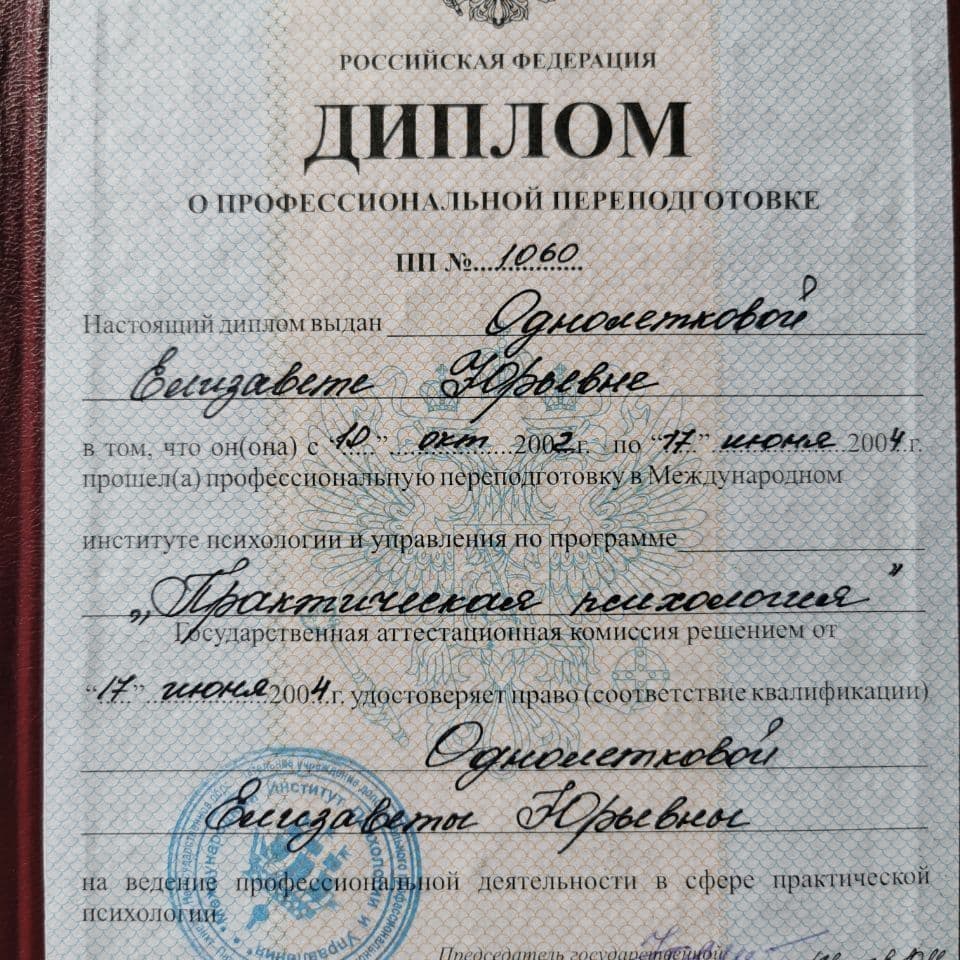 РОССИЙСКАЯ ФЕДЕРАЦИЯ
ДИПЛОМ
О ПРОФЕССИОНАЛЬНОЙ ПЕРЕПОДГОТОВКЕ
ПП №....1060
Настоящий диплом выдан Однолетковой
Елизавете Юрьевне
в том, что он(она) с “10” окт 2002г. по “17” июня 2004г.
прошел(а) профессиональную переподготовку в Международном
институте психологии и управления по программе
„Практическая психология"
Государственная аттестационная комиссия решением от
“17” июня 2004.г. удостоверяет право (соответствие квалификации)
Однолетковой
Елизаветы Юрьевны
на ведение профессиональной деятельности в сфере практической
психологии
Институт Психологии и Управления
Председатель государственной